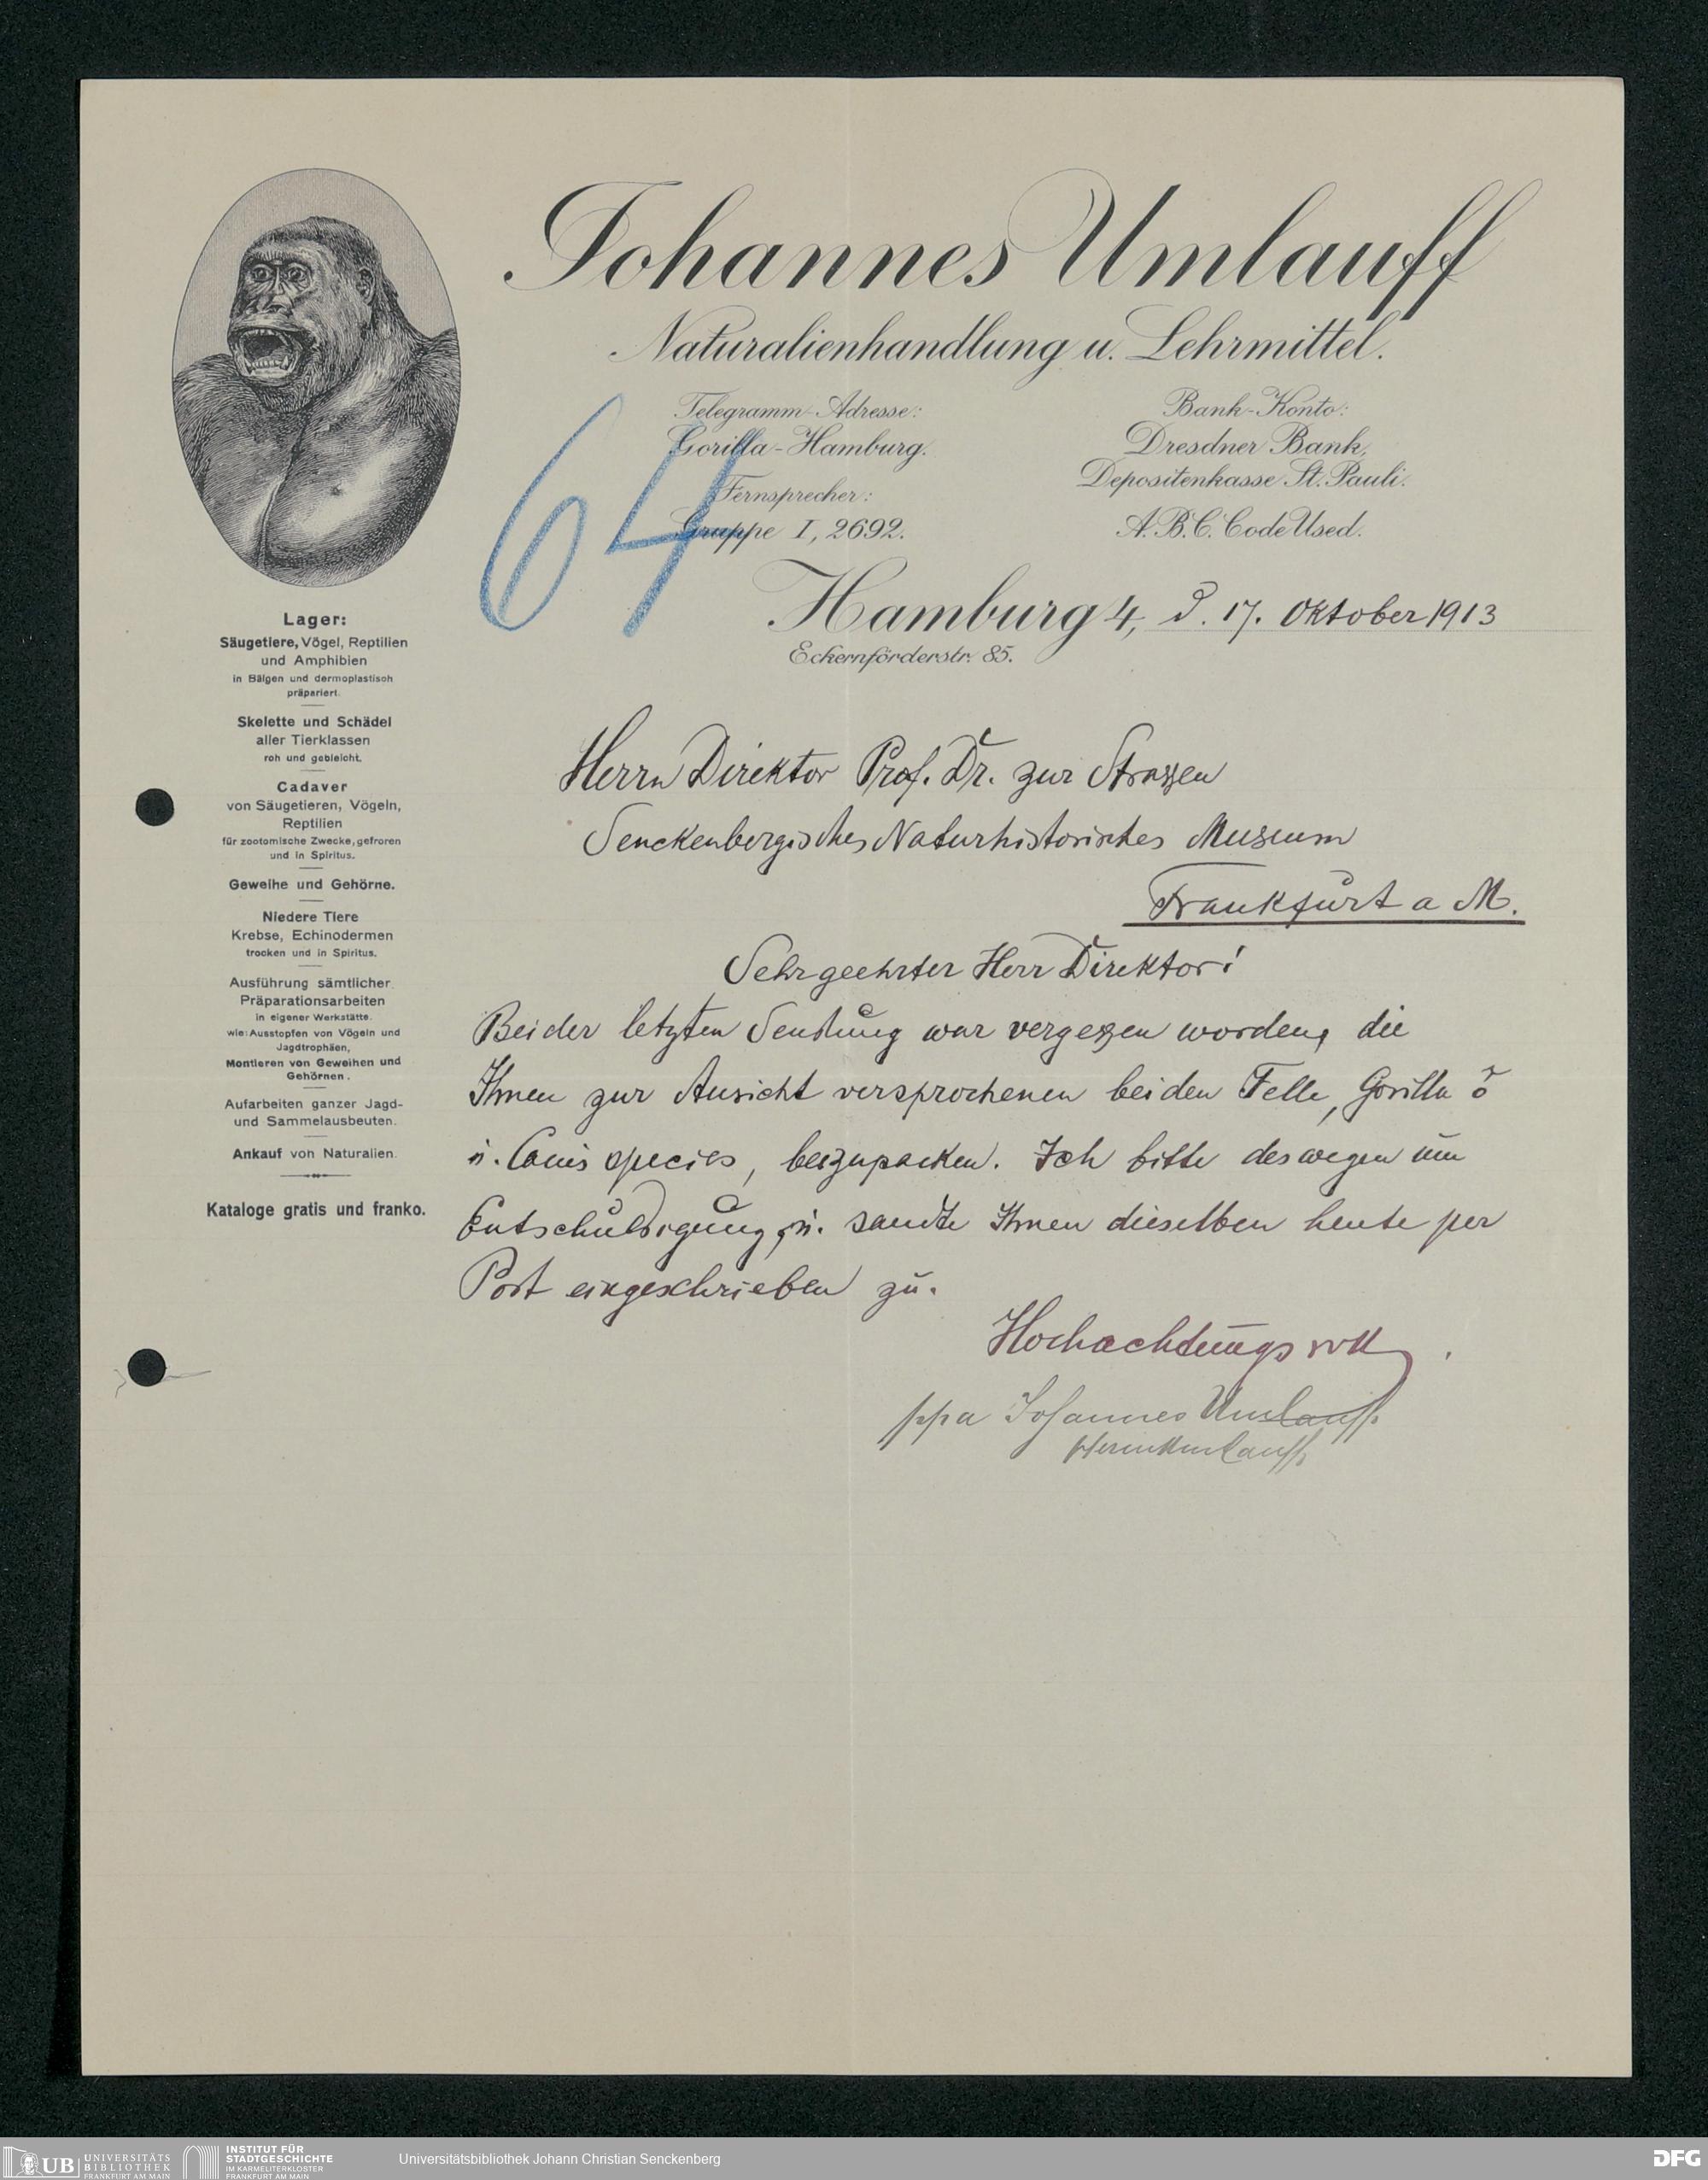 Johannes Umlauff
Naturalienhandlung u. Lehrmittel.
Telegramm-Adresse:
Gorilla-Hamburg.
Fernsprecher:
Gruppe I, 2692.
Bank-Konto:
Dresdner Bank,
Depositenkasse St. Pauli.
A.B.C. Code Used.
64
Hamburg 4, d. 17. Oktober 1913
Eckernförderstr. 85.
Lager:
Säugetiere, Vögel, Reptilien
und Amphibien
in Bälgen und dermoplastisch
präpariert.
Skelette und Schädel
aller Tierklassen
roh und gebleicht.
Cadaver
von Säugetieren, Vögeln,
Reptilien
für zootomische Zwecke, gefroren
und in Spiritus.
Geweihe und Gehörne.
Niedere Tiere
Krebse, Echinodermen
trocken und in Spiritus.
Ausführung sämtlicher
Präparationsarbeiten
in eigener Werkstätte.
wie: Ausstopfen von Vögeln und
Jagdtrophäen,
Montieren von Geweihen und
Gehörnen.
Aufarbeiten ganzer Jagd-
und Sammelausbeuten.
Ankauf von Naturalien.
Kataloge gratis und franko.
Herrn Direktor Prof. Dr. zur Strassen
Senckenbergisches Naturhistorisches Museum
Frankfurt a M.
Sehr geehrter Herr Direktor!
Bei der letzten Sendung war vergessen worden, die
Ihnen zur Ansicht versprochenen beiden Felle, Gorilla ♂
u. Canis species, beizupacken. Ich bitte deswegen um
Entschuldigung, u. sandte Ihnen dieselben heute per
Post eingeschrieben zu.
Hochachtungsvoll
ppa Johannes Umlauff
UB UNIVERSITÄTS
BIBLIOTHEK
FRANKFURT AM MAIN
INSTITUT FÜR
STADTGESCHICHTE
IM KARMELITERKLOSTER
FRANKFURT AM MAIN
Universitätsbibliothek Johann Christian Senckenberg
DFG